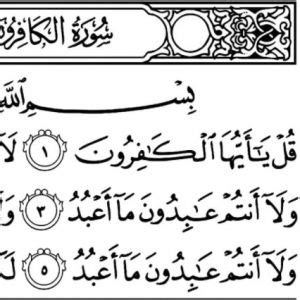 سُورَةُ الكَافِرُون
بِسْمِ ٱللَّهِ
قُلْ يَٰٓأَيُّهَا ٱلْكَٰفِرُونَ ١ لَآ
وَلَآ أَنتُمْ عَٰبِدُونَ مَآ أَعْبُدُ ٣ وَلَآ
وَلَآ أَنتُمْ عَٰبِدُونَ مَآ أَعْبُدُ ٥